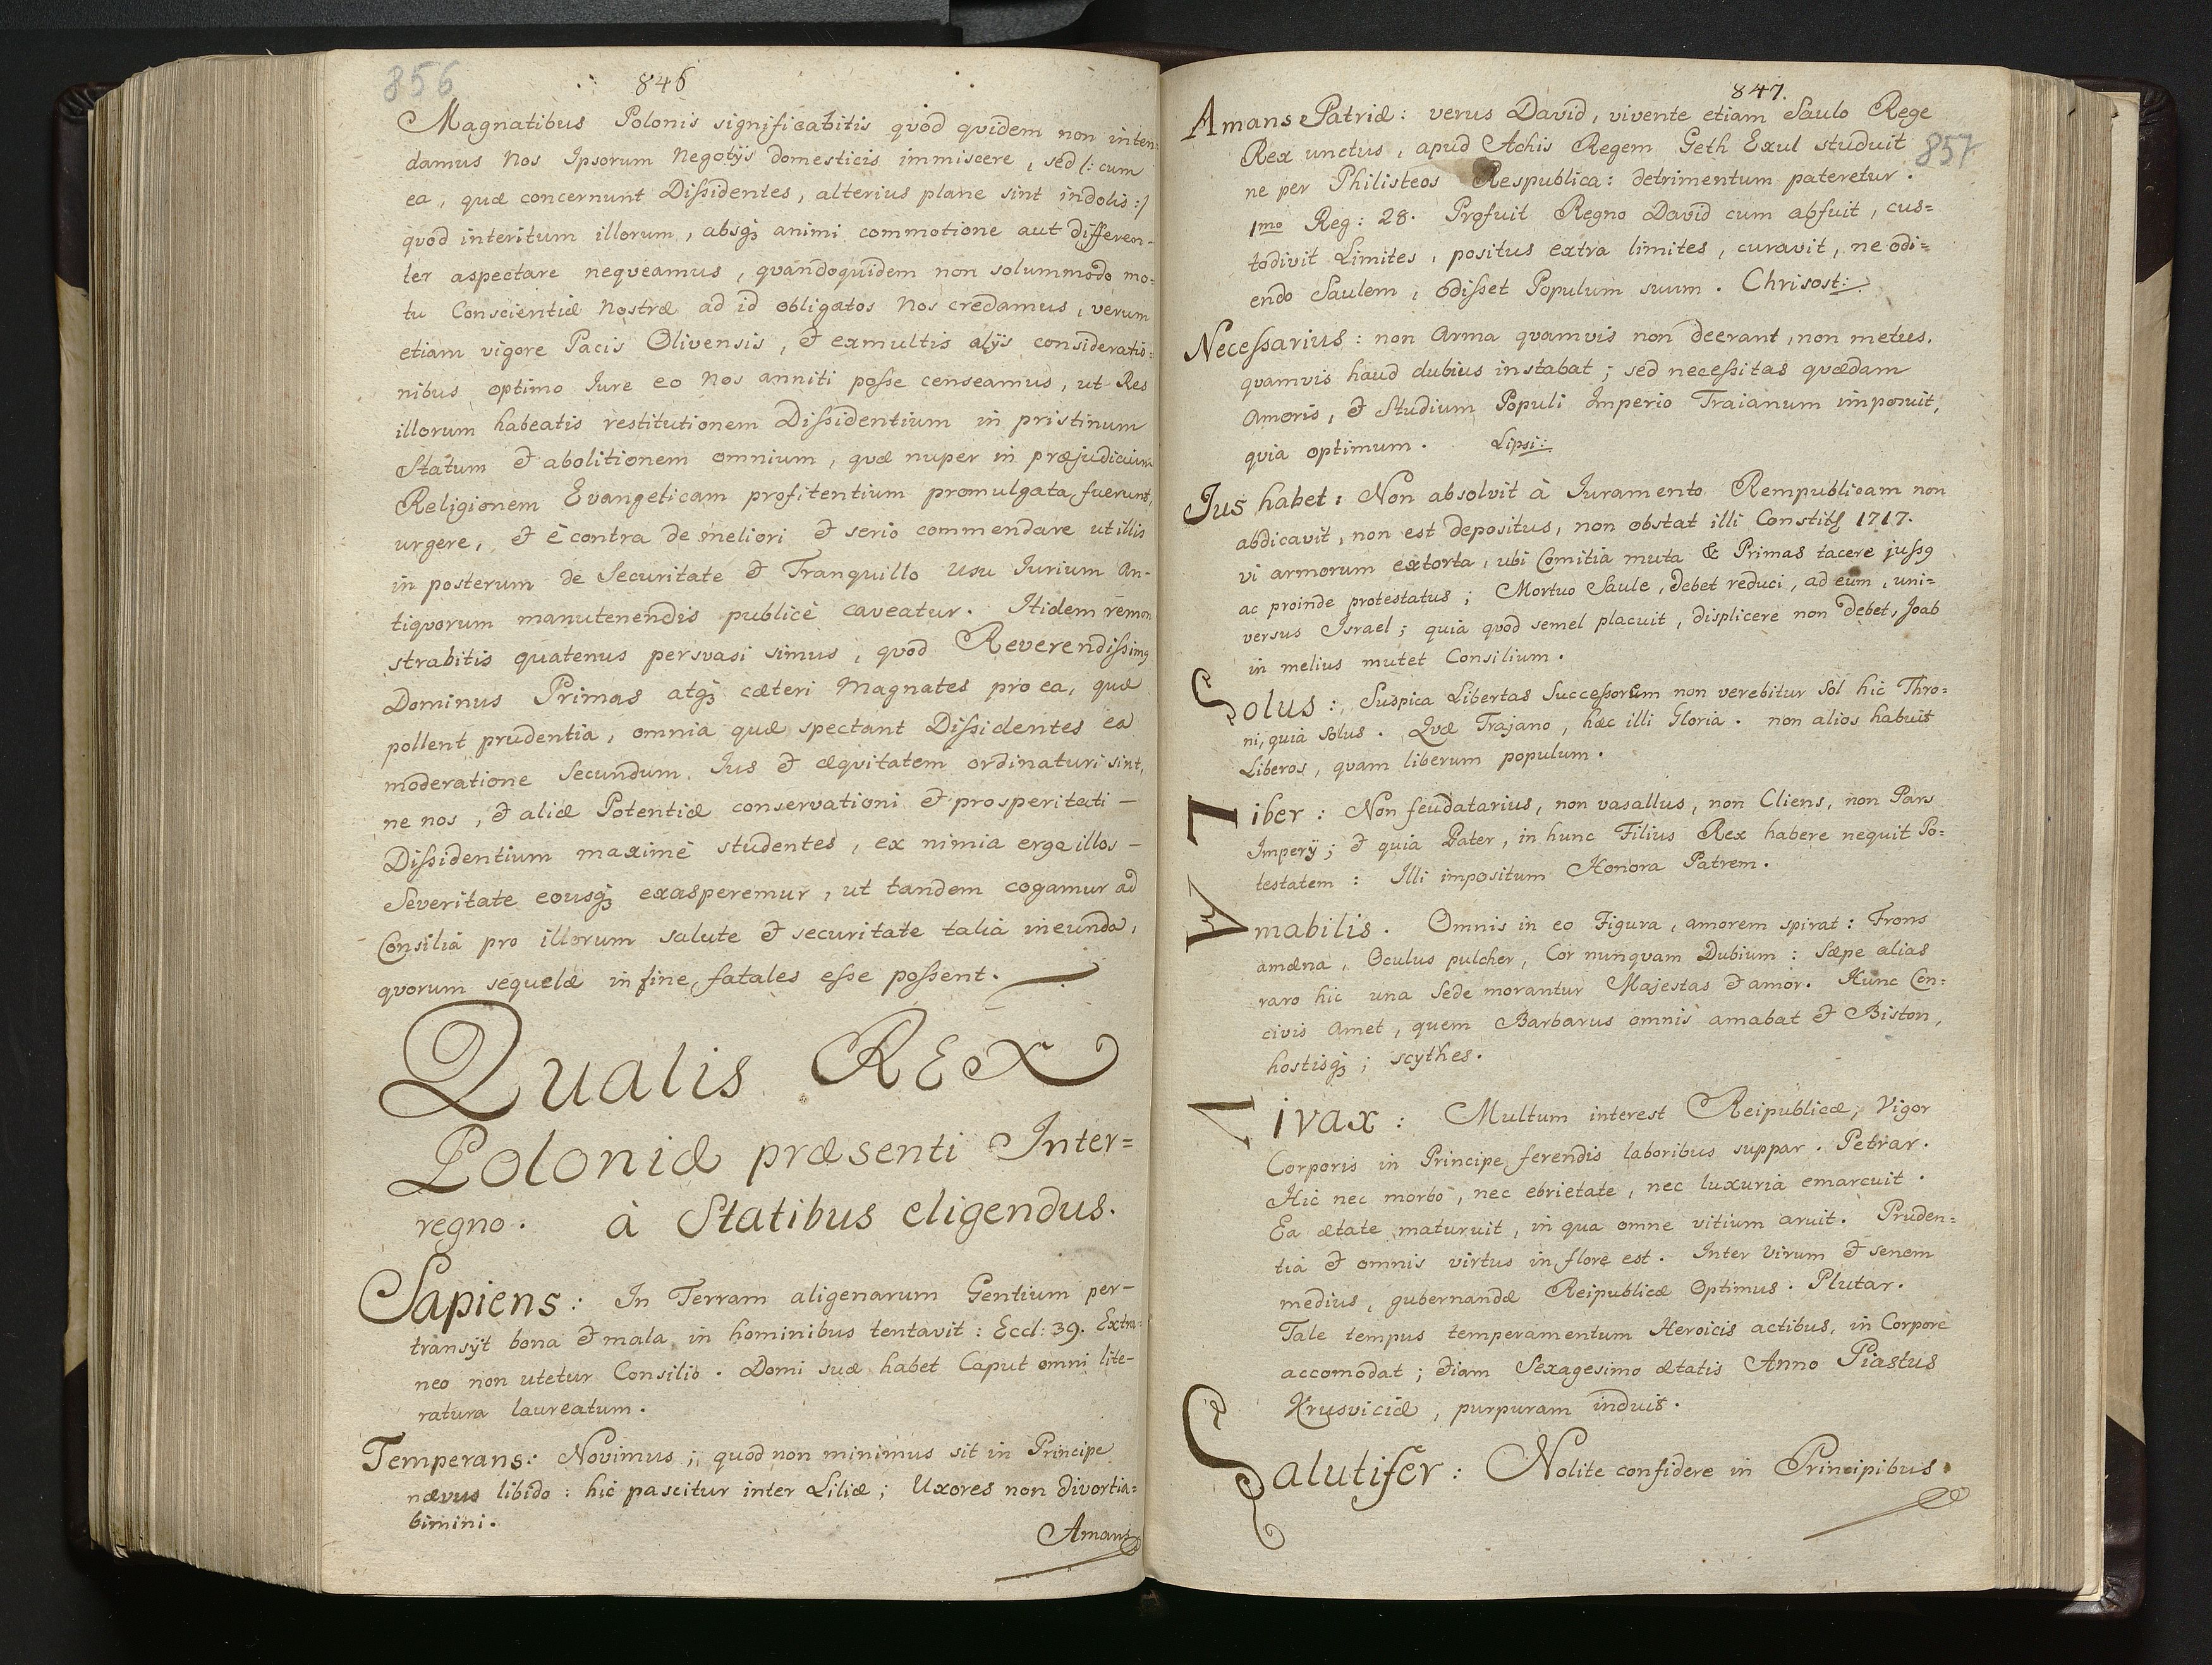 856
846
Magnatibus Polonis significabitis qvod qvidem non inten-
damus Nos Ipsorum Negotÿs domesticis immiscere, sed (: cum
ea, quæ concernunt Dißidentes, alterius plane sint indolis :)
qvod interitum illorum, absqȝ animi commotione aut differen-
ter aspectare neqveamus, qvandoqvidem non solummodo mo-
tu Conscientiæ Nostræ ad id obligatos Nos credamus, verum
etiam vigore Pacis Olivensis, & exmultis alÿs consideratio=
nibus optimo Iure eo Nos anniti poße censeamus, ut Res
illorum habeatis restitutionem Dißidentium in pristinum
Statum & abolitionem omnium, quæ nuper in præjudicium
Religionem Evangelicam profitentium promulgata fuerunt,
urgere, & è contra de meliori & serio commendare ut illis
in posterum de Securitate & Tranquillo Usu Iurium An-
tiqvorum manutenendis publicè caveatur. Itidem remon
strabitis quatenus persvasi simus, qvod Reverendißimꝰ
Dominus Primas atqȝ cæteri Magnates pro ea, quæ
pollent prudentia, omnia quæ spectant Dißidentes ea
moderatione Secundum Ius & æqvitatem ordinaturi sint,
ne nos, & aliæ Potentiæ conservationi & prosperitati –
Dißidentium maximè studentes, ex nimia erga illos –
Severitate eousqȝ exasperemur, ut tandem cogamur ad
Consilia pro illorum salute & securitate talia ineunda,
qvorum sequelæ in fine fatales eße poßent.
Qualis REX
Poloniæ præsenti Inter=
regno. à Statibus eligendus.
Sapiens: In Terram aligenarum Gentium per-
transÿt bona & mala in hominibus tentavit: Eccl: 39. Extra-
neo non utetur Consilio. Domi suæ habet Caput omni lite-
ratura laureatum.
Temperans: Novimus; quod non minimus sit in Principe
nævus libido: hic pascitur inter Liliæ; Uxores non divortia=
bimini.
Amans
847.
857
Amans Patriæ: verus David, vivente etiam Saulo Rege
Rex unctus, apud Achis Regem Geth Exul studuit
ne per Philisteos Respublica: detrimentum pateretur.
1mo Reg: 28. Profuit Regno David cum abfuit, cus=
todivit Limites, positus extra limites, curavit, ne odi=
endo Saulem, odißet Populum suum. Chrisost:
Neceßarius: non Arma qvamvis non deerant, non metus,
qvamvis haud dubius instabat; sed neceßitas qvædam
Amoris, & Studium Populi Imperio Traianum imposuit,
qvia optimum. Lipsi:
Jus habet: Non absolvit à Iuramento Rempublicam non
abdicavit, non est depositus, non obstat illi Constit: 1717.
vi armorum extorta, ubi Comitia muta & Primas tacere jußꝰ
ac proinde protestatus; Mortuo Saule, debet reduci, ad eum, uni=
versus Israel; quia qvod semel placuit, displicere non debet, Joab
in melius mutet Consilium.
Solus: Suspica Libertas Succeßorem non verebitur Sol hic Thro=
ni, quia Solus. Qvæ Trajano, hæc illi Gloria. non alios habuit
Liberos, quam liberum populum.
Liber: Non feudatarius, non vasallus, non Cliens, non Pars
Imperÿ; & quia Pater, in hunc Filius Rex habere nequit Po=
testatem: Illi impositum Honora Patrem.
Amabilis. Omnis in eo Figura, amorem spirat: Frons
amæna, Oculus pulcher, Cor nunqvam Dubium: Sæpe alias
raro hic una Sede morantur Majestas & amor. Hunc Con=
civis Amet, quem Barbarus omnis amabat & Biston,
hostisqȝ; scythes.
Vivax: Multum interest Reipublicæ, Vigor
Corporis in Principe ferendis laboribus suppar. Petrar.
Hic nec morbo, nec ebrietate, nec luxuria emarcuit.
Ea ætate maturuit, in qua omne vitium aruit. Pruden=
tia & omnis virtus in flore est. Inter Virum & senem
medius, gubernandæ Reipublicæ Optimus. Plutar.
Tale tempus temperamentum Heroicis actibus, in Corpore
accomodat; Etiam Sexagesimo ætatis Anno Piastus
Krusviciæ, purpuram induit.
Salutifer: Nolite confidere in Principibus